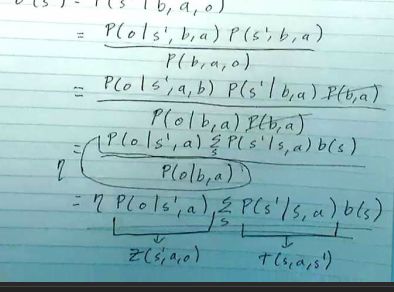 b'(s') = P(s' | b, a, o)
= P(o|s', b, a) P(s', b, a)
P(b, a, o)
= P(o|s', a, b) P(s'|b, a) P(b, a)
P(o|b, a) P(b, a)
= P(o|s', a) Σ P(s'|s, a) b(s)
s
η
P(o|b, a)
= η P(o|s', a) Σ P(s'|s, a) b(s)
s
Z(s', a, o) T(s, a, s')